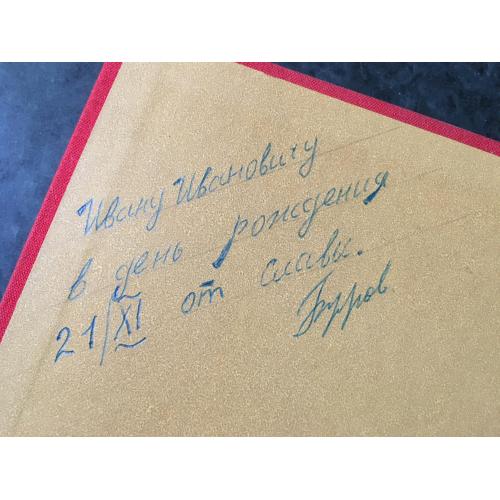 Ивану Ивановичу
в день рождения
21/XI от славы.
Бурров.